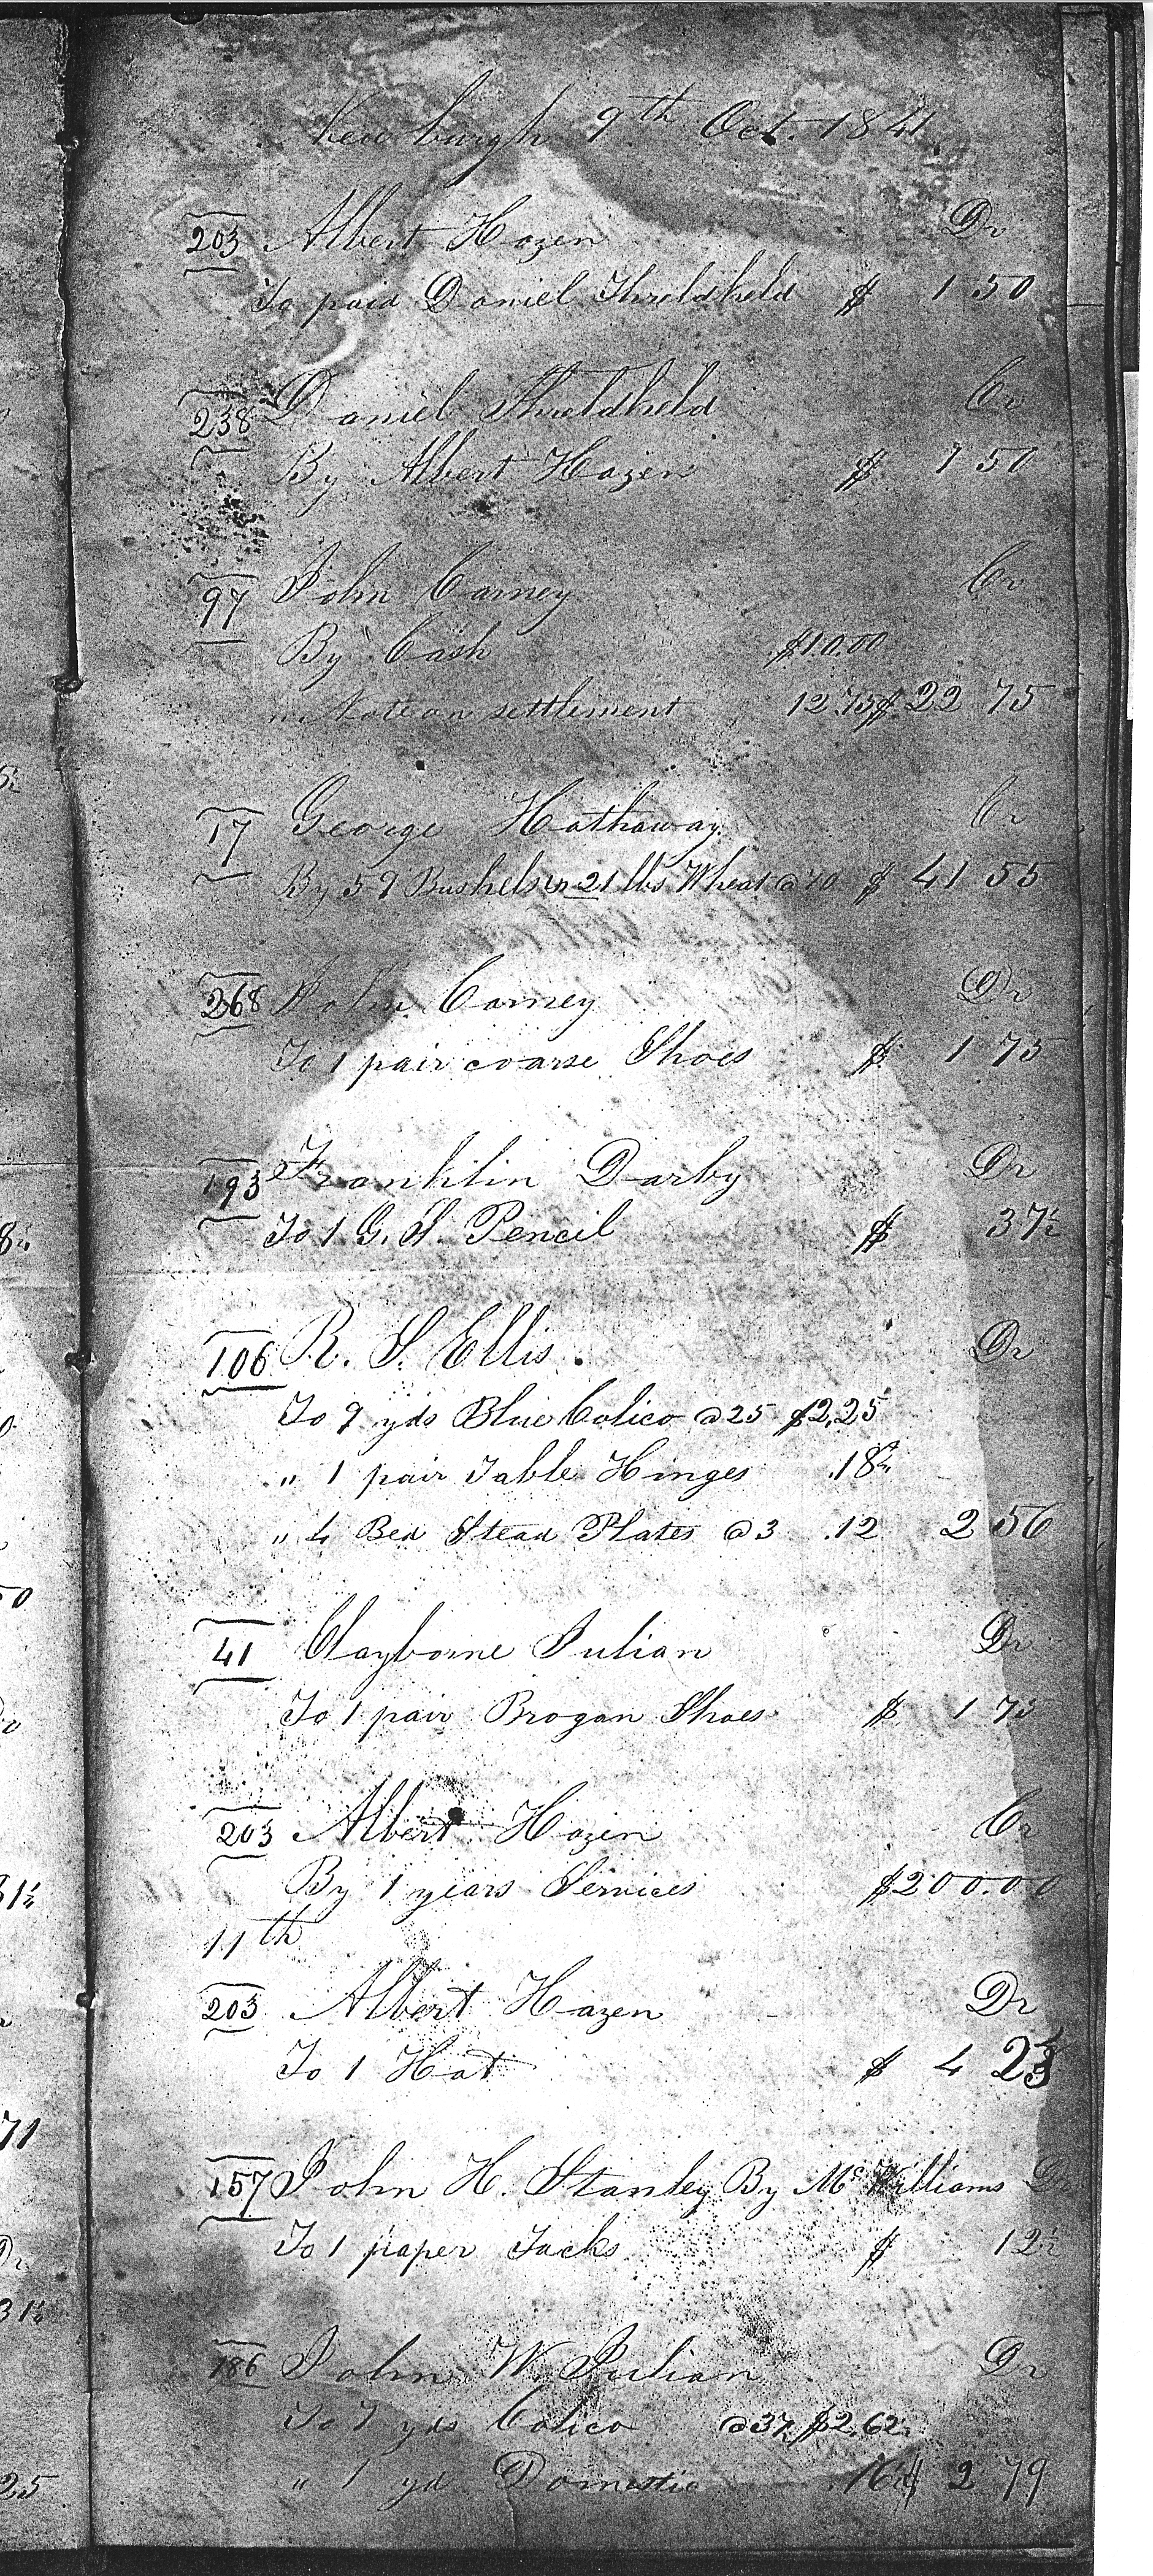 Newburgh 9th Oct. 1841
203 Albert Hozen Dr
To paid Daniel Threldkeld $ 1 50
238 Daniel Threldkeld Cr
By Albert Hozen $ 1 50
97 John Carney Cr
By Cash $10.00
" Note on settlement 12.75 $ 22 75
17 George Hathaway Cr
By 59 Bushels & 21 lbs Wheat @ 70 $ 41 55
268 John Carney Dr
To 1 pair coarse Shoes $ 1 75
193 Franklin Darby Dr
To 1 G. S. Pencil $ 37½
106 R. S. Ellis. Dr
To 9 yds Blue Calico @ 25 $2,25
" 1 pair Table Hinges .18¾
" 4 Bed Stead Plates @ 3 .12 2 56
41 Clayborne Julian Dr
To 1 pair Brogan Shoes $ 1 75
203 Albert Hozen Cr
By 1 years Services $200.00
11th
203 Albert Hazen Dr
To 1 Hat $ 4 23
157 John H. Stanley By McWilliams Dr
To 1 paper Tacks $ 12½
186 John W. Julian Dr
To 7 yds Calico @ 37½ $2,62½
" 1 yd Domestic 16 $ 2 79